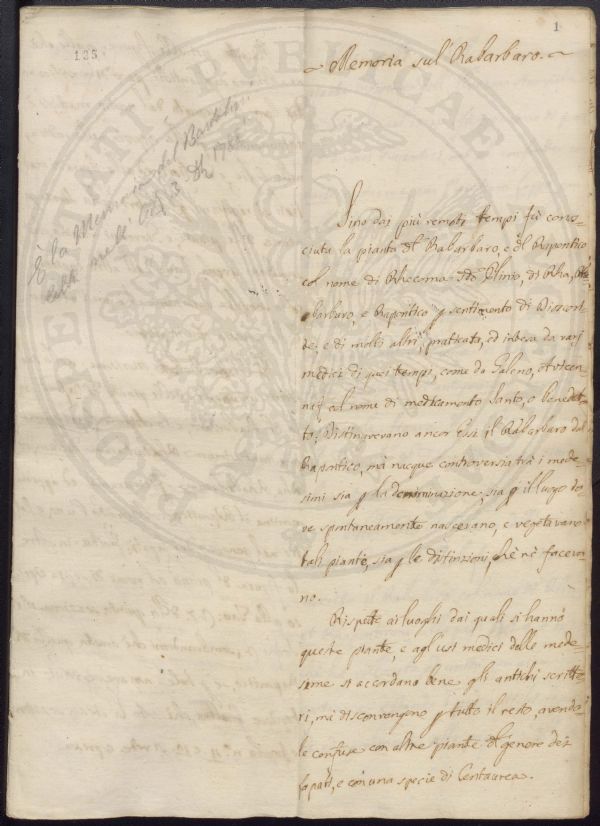 1
135
Memoria sul Rabarbaro.
È la Memoria del
nelle
Sino dai più remoti tempi fù cono=
sciuta la pianta del Rabarbaro, e del Rapontico
col nome di Rhecoma da Plinio, di Rha,
barbaro, e Rapontico p sentimento di Dioscori=
de; e di molti altri, praticata, ed intesa da varj
medici di quei tempi, come da Galeno, Avicen
na; col nome di medicamento Santo, o benedet=
to; Distinguevano ancor Essi il Rabarbaro dal
Rapontico, mà nacque controversia trà i mede=
simi sia p la denominazione, sia p il luogo do=
ve spontaneamente nascevano, e vegetavano
tali piante, sia p le distinzioni, che nè faceva=
no.
Rispetto ai luoghi dai quali si hannò
queste piante, e agl'usi medici delle mede=
sime si accordano bene gli antichi scritto=
ri, mà disconvengono p tutto il resto, avendo=
le confuse con altre piante del genere dei
lapati, e con una specie di Centaurea.
PROSPERITATI PUBLICAE